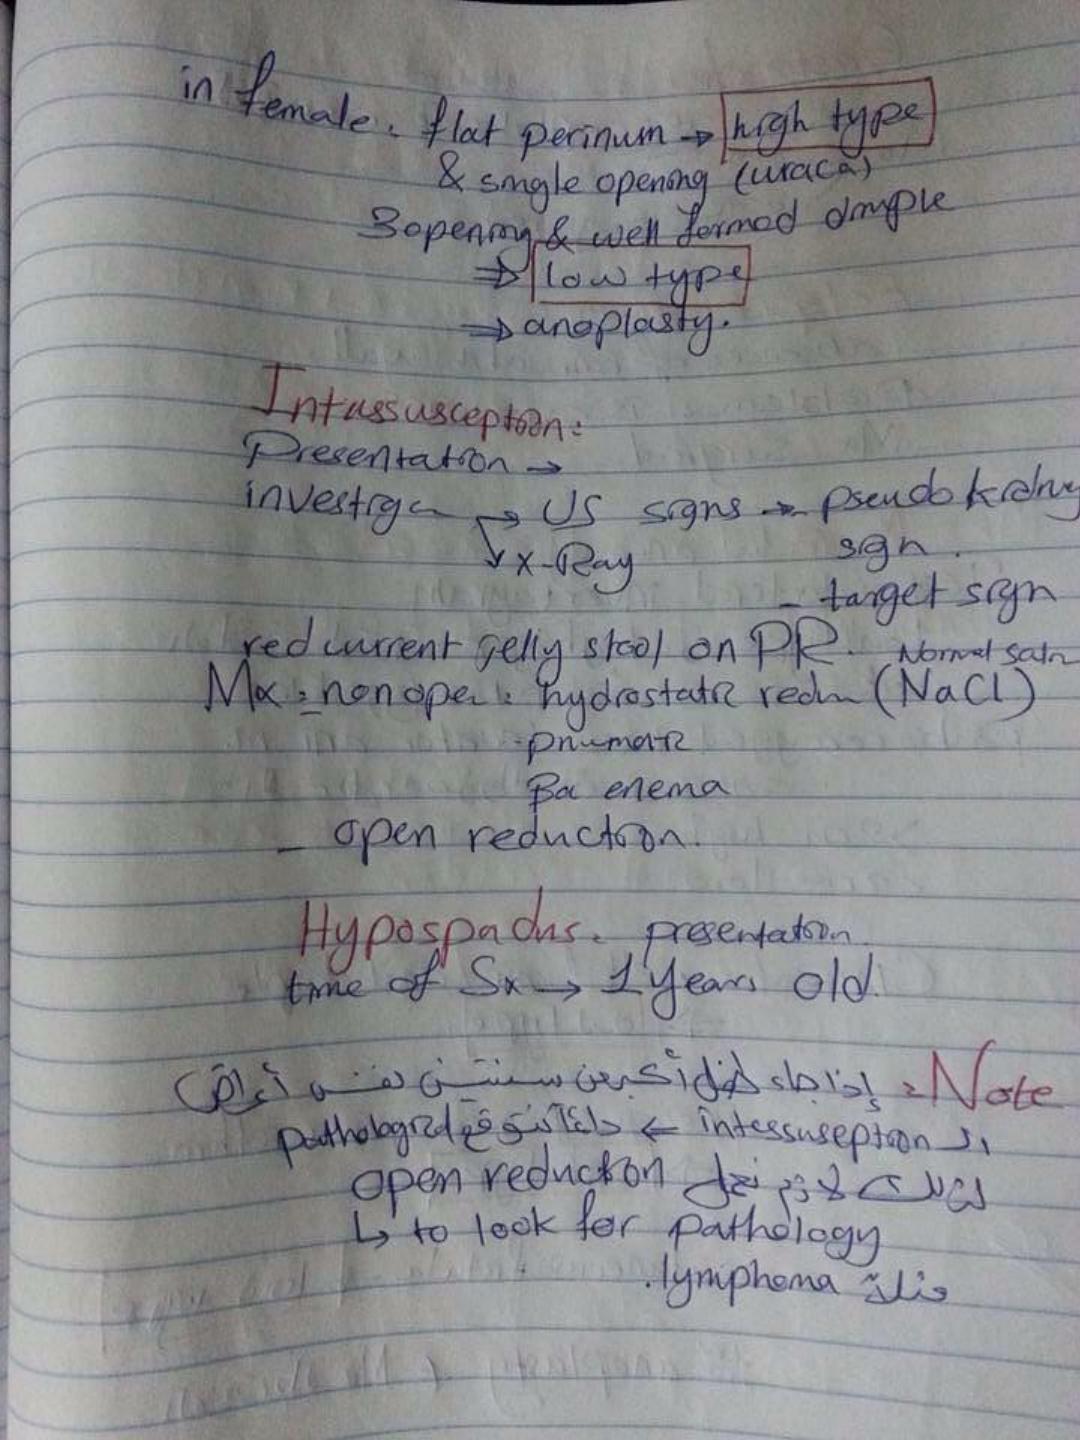 in female. flat perinum → high type
& single opening (uraca)
3 opening & well formed dimple
⇒ low type
⇒ anoplasty.
Intussusception:
Presentation →
investiga → US signs → pseudo kidney
sign.
↘ x-Ray
- target sign
red current gelly stool on PR. Normal salin
Mx: non ope: hydrostatic redu (NaCl)
pnumatic
Ba enema
- open reduction.
Hypospadias. presentation
time of Sx → 1 years old.
Note: إذا جاء طفل أكبر من سنتين بنفس أعراض
الـ intessuseption ← دائماً نتوقع pathological
لذلك لازم نعمل open reduction
↳ to look for pathology
مثلاً lymphoma.